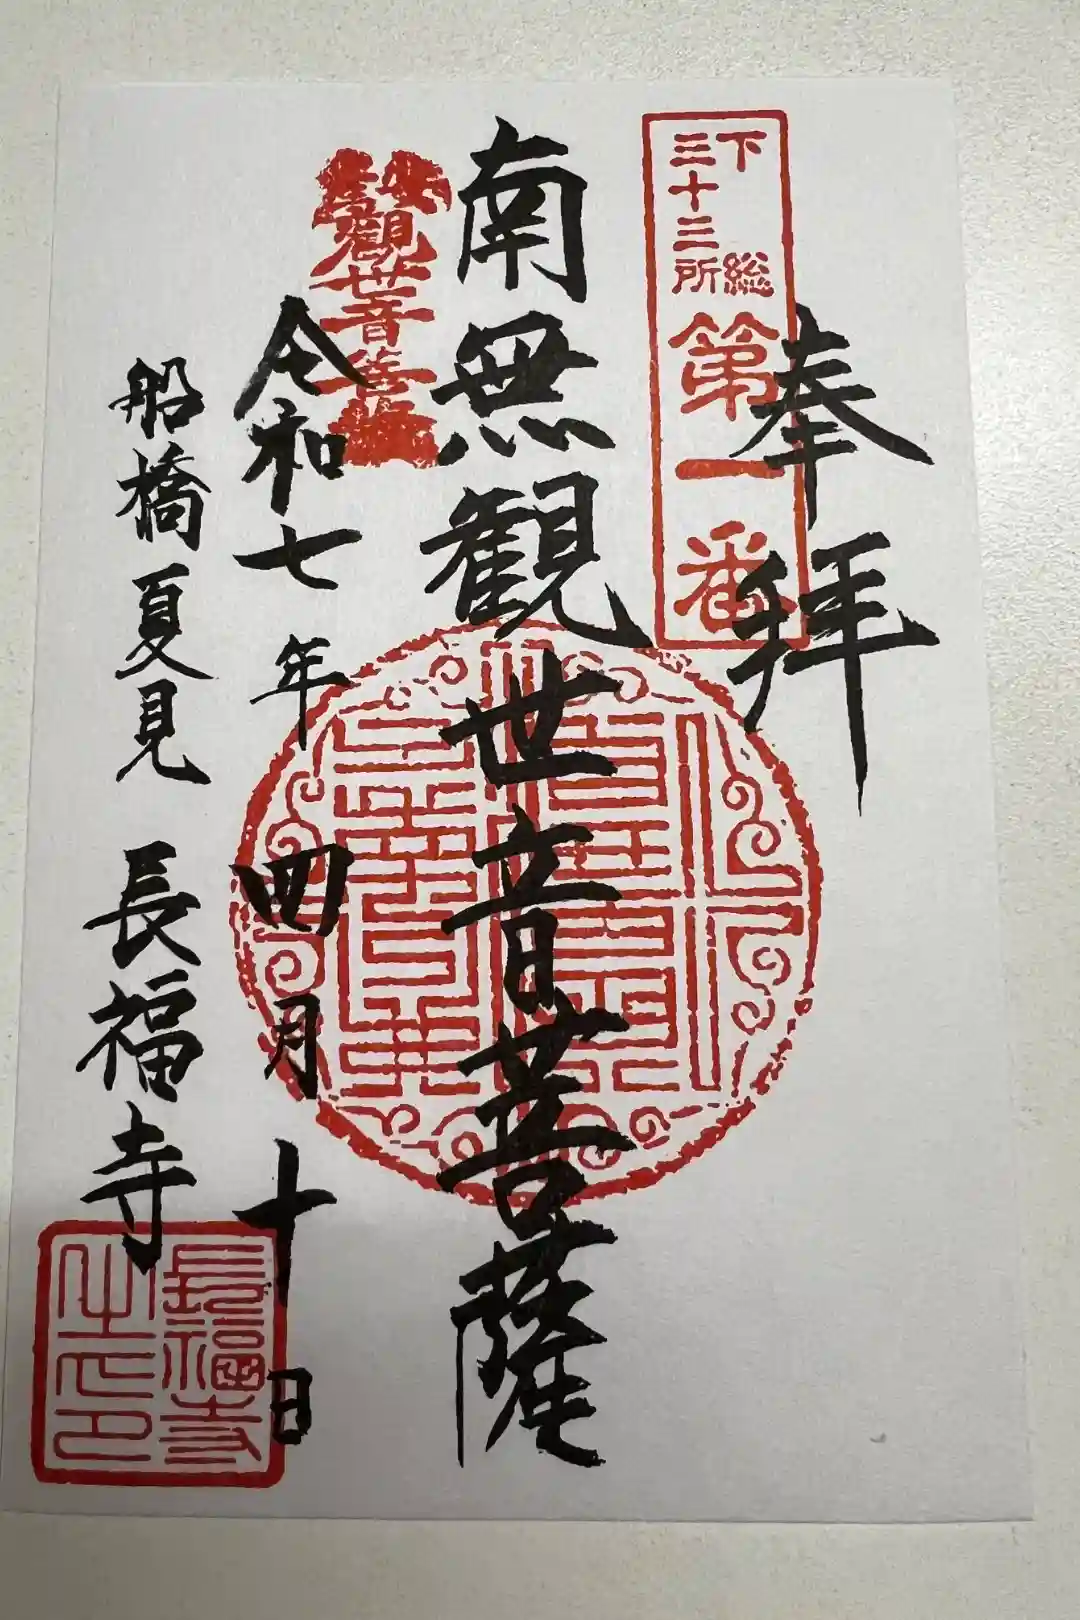 奉拝
下総
三十三所
第一番
南無観世音菩薩
觀世音菩
令和七年四月十日
船橋夏見 長福寺
長福寺
之印